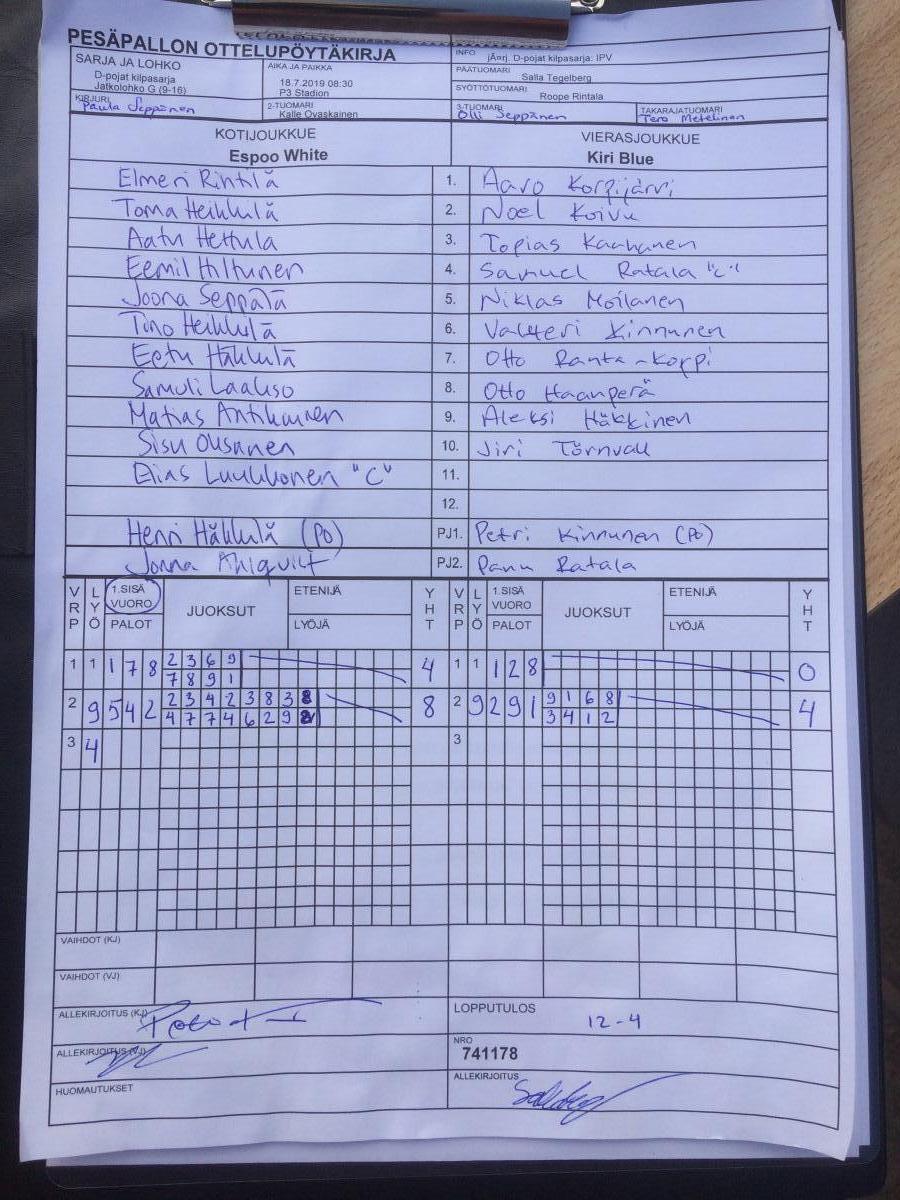 PESÄPALLON OTTELUPÖYTÄKIRJA
SARJA JA LOHKO
D-pojat kilpasarja
Jatkolohko G (9-16)
AIKA JA PAIKKA
18.7.2019 08:30
P3 Stadion
INFO jÄnrj. D-pojat kilpasarja: IPV
PÄÄTUOMARI
Salla Tegelberg
SYÖTTÖTUOMARI
Roope Rintala
KIRJURI
Paula Seppänen
2-TUOMARI
Kalle Ovaskainen
3-TUOMARI
Olli Seppänen
TAKARAJATUOMARI
Tero Metelinen
KOTIJOUKKUE VIERASJOUKKUE
Espoo White Kiri Blue
Elmeri Rintilä 1. Aaro Korpijärvi
Toma Heikkilä 2. Noel Koivu
Aatu Hettula 3. Topias Kauhanen
Eemil Hiltunen 4. Samuel Ratala "C"
Joona Seppälä 5. Niklas Moilanen
Timo Heikkilä 6. Valtteri Kinnunen
Eetu Häkkilä 7. Otto Ranta-Korpi
Samuli Laakso 8. Otto Haanperä
Matias Antikainen 9. Aleksi Häkkinen
Sisu Ousanen 10. Jiri Törnvall
Elias Luukkonen "C" 11.
12.
Henri Häkkilä (PO) PJ1. Petri Kinnunen (PO)
Jonna Ahlqvist PJ2. Panu Ratala
VRP LYÖ 1.SISÄ VUORO PALOT JUOKSUT ETENIJÄ LYÖJÄ YHT VRP LYÖ 1.SISÄ VUORO PALOT JUOKSUT ETENIJÄ LYÖJÄ YHT
1 1 1 7 8 2 3 6 9 4 1 1 1 2 8 0
7 8 9 1
2 9 5 4 2 2 3 4 2 3 8 3 8 8 2 9 2 9 1 9 1 6 8 4
4 7 7 4 6 2 9 2 3 4 1 2
3 4 3
VAIHDOT (KJ)
VAIHDOT (VJ)
ALLEKIRJOITUS (KJ)
LOPPUTULOS
12-4
ALLEKIRJOITUS (VJ)
NRO
741178
HUOMAUTUKSET
ALLEKIRJOITUS